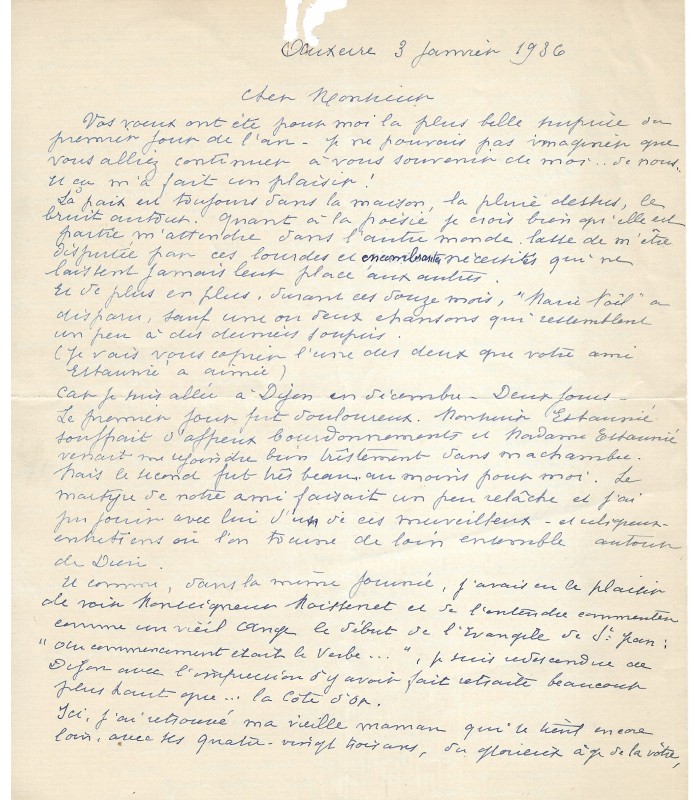 Auxerre 3 Janvier 1936
Cher Monsieur
Vos vœux ont été pour moi la plus belle surprise du
premier jour de l'an - Je ne pouvais pas imaginer que
vous alliez continuer à vous souvenir de moi.. de nous.
Et ça m'a fait un plaisir !
La paix est toujours dans la maison, la pluie dessus, le
bruit autour. Quant à la poésie, je crois bien qu'elle est
partie m'attendre dans l'autre monde, lasse de m'être
disputée par ces lourdes et encombrantes nécessités qui ne
laissent jamais leur place aux autres.
Et de plus en plus, durant ces douze mois, "Marie Noël" a
disparu, sauf une ou deux chansons qui ressemblent
un peu à des derniers soupirs.
(Je vais vous copier l'une des deux que votre ami
Estaunié a aimée)
Car je suis allée à Dijon en décembre - Deux jours -
Le premier jour fut douloureux. Monsieur Estaunié
souffrait d'affreux bourdonnements et Madame Estaunié
venait me rejoindre bien tristement dans ma chambre.
Mais le second fut très beau, au moins pour moi. Le
martyre de notre ami faisait un peu relâche et j'ai
pu jouir avec lui d'un de ces merveilleux - et
entretiens où l'on tourne de loin ensemble autour
de Dieu.
Et comme, dans la même journée, j'avais eu le plaisir
de voir Monseigneur Moissenet et de l'entendre commenter
comme un vieil Ange le début de l'Evangile de St Jean :
"Au commencement était le Verbe...", je suis redescendue de
Dijon avec l'impression d'y avoir fait retraite beaucoup
plus haut que... la Côte d'Or.
Ici, j'ai retrouvé ma vieille maman qui se tient encore
loin, avec ses quatre-vingt trois ans, du glorieux âge de la vôtre,